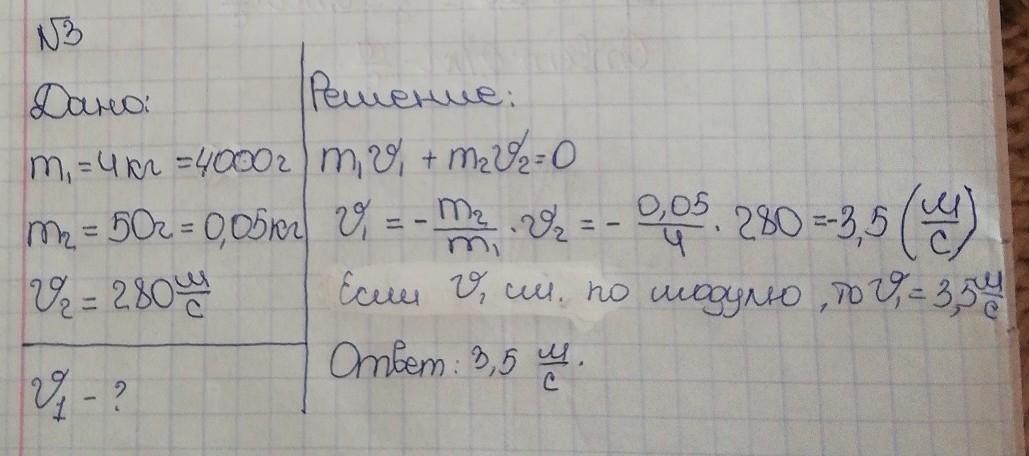 №3
Дано:
m₁ = 4кг = 4000г
m₂ = 50г = 0,05кг
υ₂ = 280 м/с
υ₁ - ?
Решение:
m₁υ₁ + m₂υ₂ = 0
υ₁ = - m₂/m₁ · υ₂ = - 0,05/4 · 280 = -3,5 (м/с)
Если υ₁ см. по модулю, то υ₁ = 3,5 м/с
Ответ: 3,5 м/с.